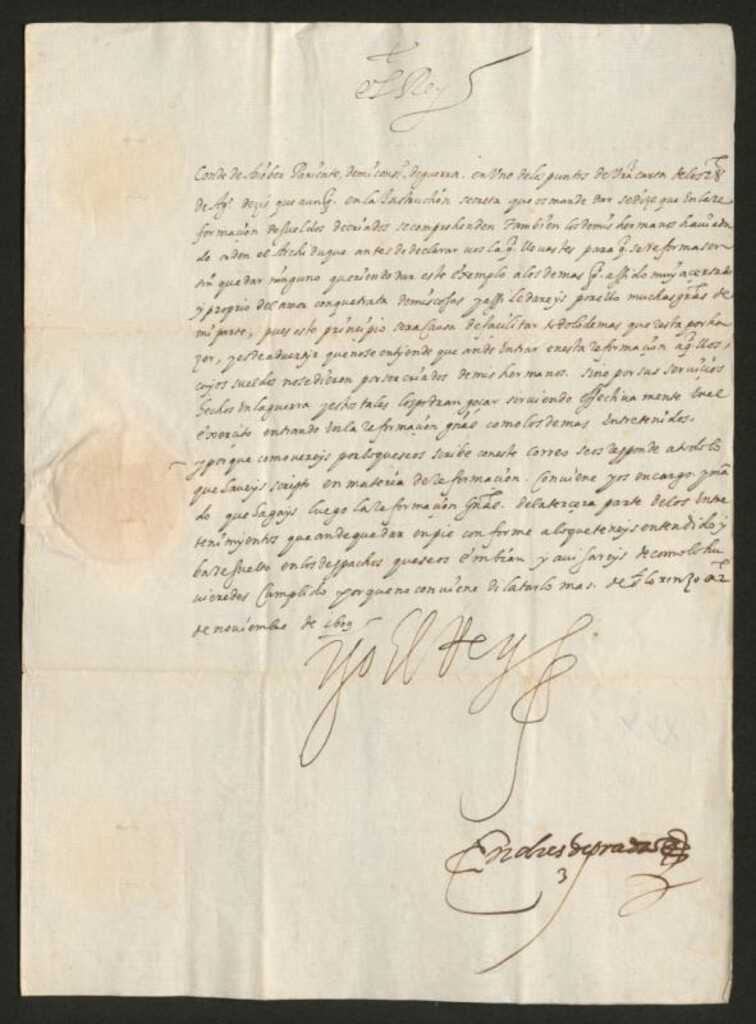 El Rey
Conde de Añober Pariente, de mi cons.º de guerra. en Uno de los puntos de Vra carta de los 28
de Ag.to dezis que aunq. en la Instruction secreta que os mande dar se dize que en la re
formaçion de sueldos de criados se comprehenden tambien los de mis hermanos havia da
do orden el Archiduque antes de declarar vos la q. llevastes para q. se reformasen
sin quedar ninguno queriendo dar este exemplo a los demas q. a sido muy açertado
y proprio del amor con que trata de mis cosas y assi le dareys por ello muchas gras de
mi parte, pues este prinçipio sera causa de façilitar todo lo demas que resta por ha
zer, y es de advertir que no se entiende que an de entrar en esta reformaçion aq.llos
cuyos sueldos no se dieron por ser criados de mis hermanos. sino por sus serviçios
hechos en la guerra y estos tales los podran goçar sirviendo effectivamente en el
exercito entrando en la reformaçion gñal como los demas entretenidos.
y porque como vereys por lo que se os escribe con este correo se os responde a todo lo
que haveys scripto en materia de reformaçion. Conviene y os encargo y man
do que hagays luego la reformaçion gñal. de la tercera parte de los entre
tenimientos que an de quedar en pie conforme a lo que teneys entendido y
va resuelto en los despachos que se os embian y avisareys de como lo hu
vieredes cumplido porque no conviene dilatarlo mas. de S. Lorenzo a 2
de noviembre de 1609
Yo El Rey
Andres de prada
3